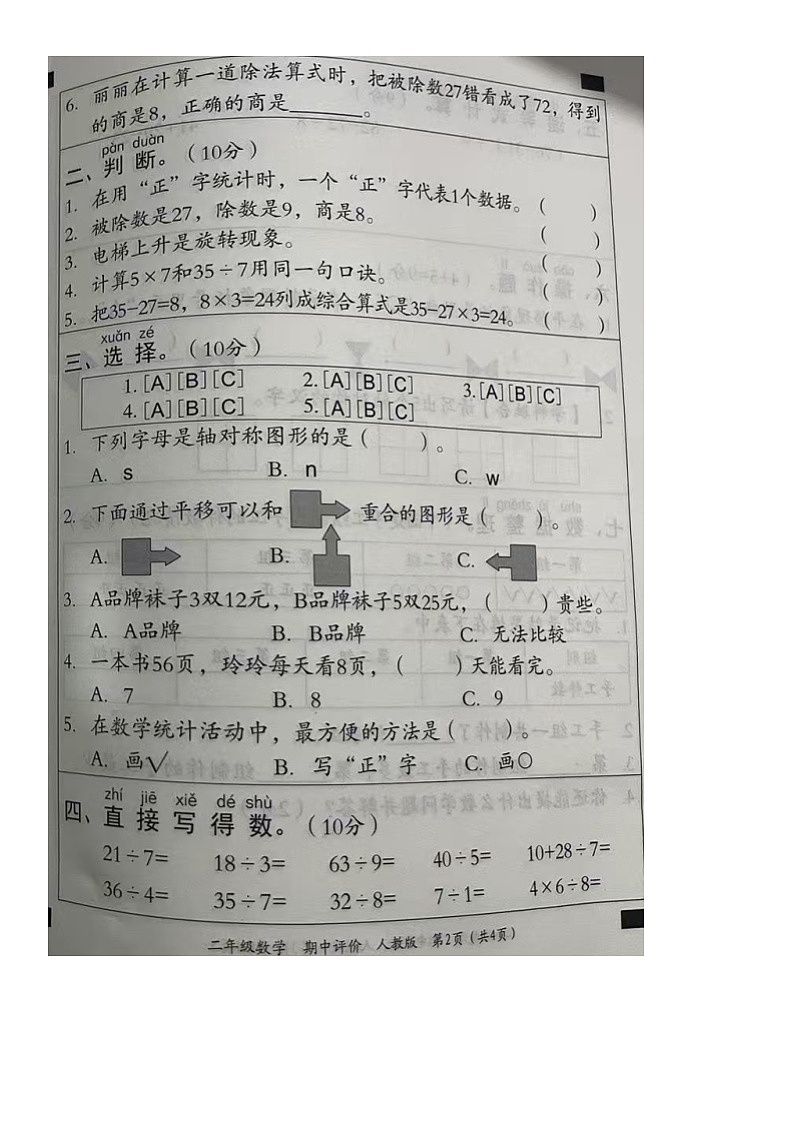 6. 丽丽在计算一道除法算式时，把被除数27错看成了72，得到
的商是8，正确的商是______。
pàn duàn
二、判断。（10分）
1. 在用“正”字统计时，一个“正”字代表1个数据。（ ）
2. 被除数是27，除数是9，商是8。（ ）
3. 电梯上升是旋转现象。（ ）
4. 计算5×7和35÷7用同一句口诀。（ ）
5. 把35-27=8，8×3=24列成综合算式是35-27×3=24。（ ）
xuǎn zé
三、选择。（10分）
1.[A][B][C] 2.[A][B][C] 3.[A][B][C]
4.[A][B][C] 5.[A][B][C]
1. 下列字母是轴对称图形的是（ ）。
A. s B. n C. w
2. 下面通过平移可以和 重合的图形是（ ）。
A. B. C.
3. A品牌袜子3双12元，B品牌袜子5双25元，（ ）贵些。
A. A品牌 B. B品牌 C. 无法比较
4. 一本书56页，玲玲每天看8页，（ ）天能看完。
A. 7 B. 8 C. 9
5. 在数学统计活动中，最方便的方法是（ ）。
A. 画√ B. 写“正”字 C. 画○
zhí jiē xiě dé shù
四、直接写得数。（10分）
21÷7= 18÷3= 63÷9= 40÷5= 10+28÷7=
36÷4= 35÷7= 32÷8= 7÷1= 4×6÷8=
二年级数学 期中评价 人教版 第2页（共4页）